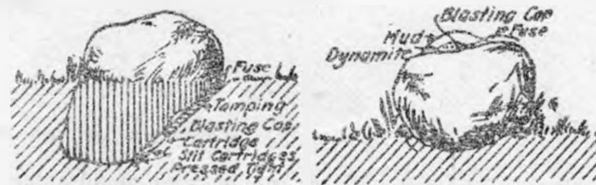 Fuse
Tamping
Blasting Cap
Cartridge
Slit Cartridges
Pressed Tight
Blasting Cap
Mud
Fuse
Dynamite